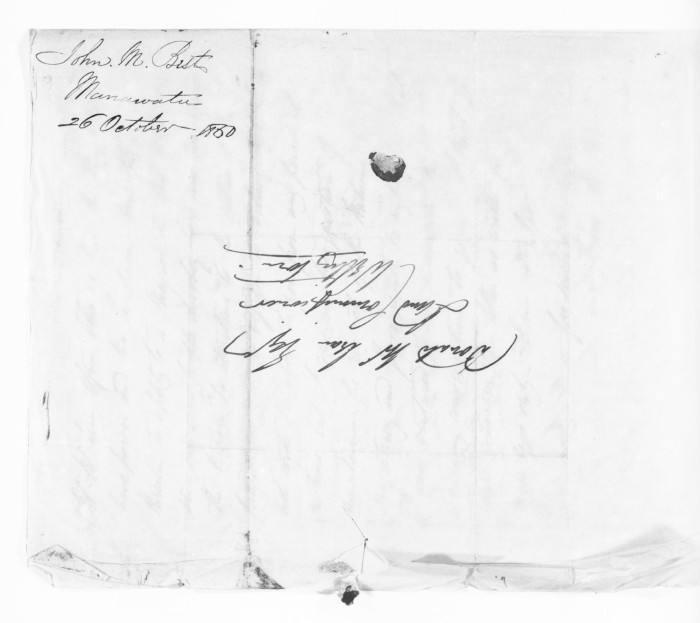 John. M. Best
Manawatu
26 October 1850
Donald McLean Esqr
Land Commissioner
Wellington